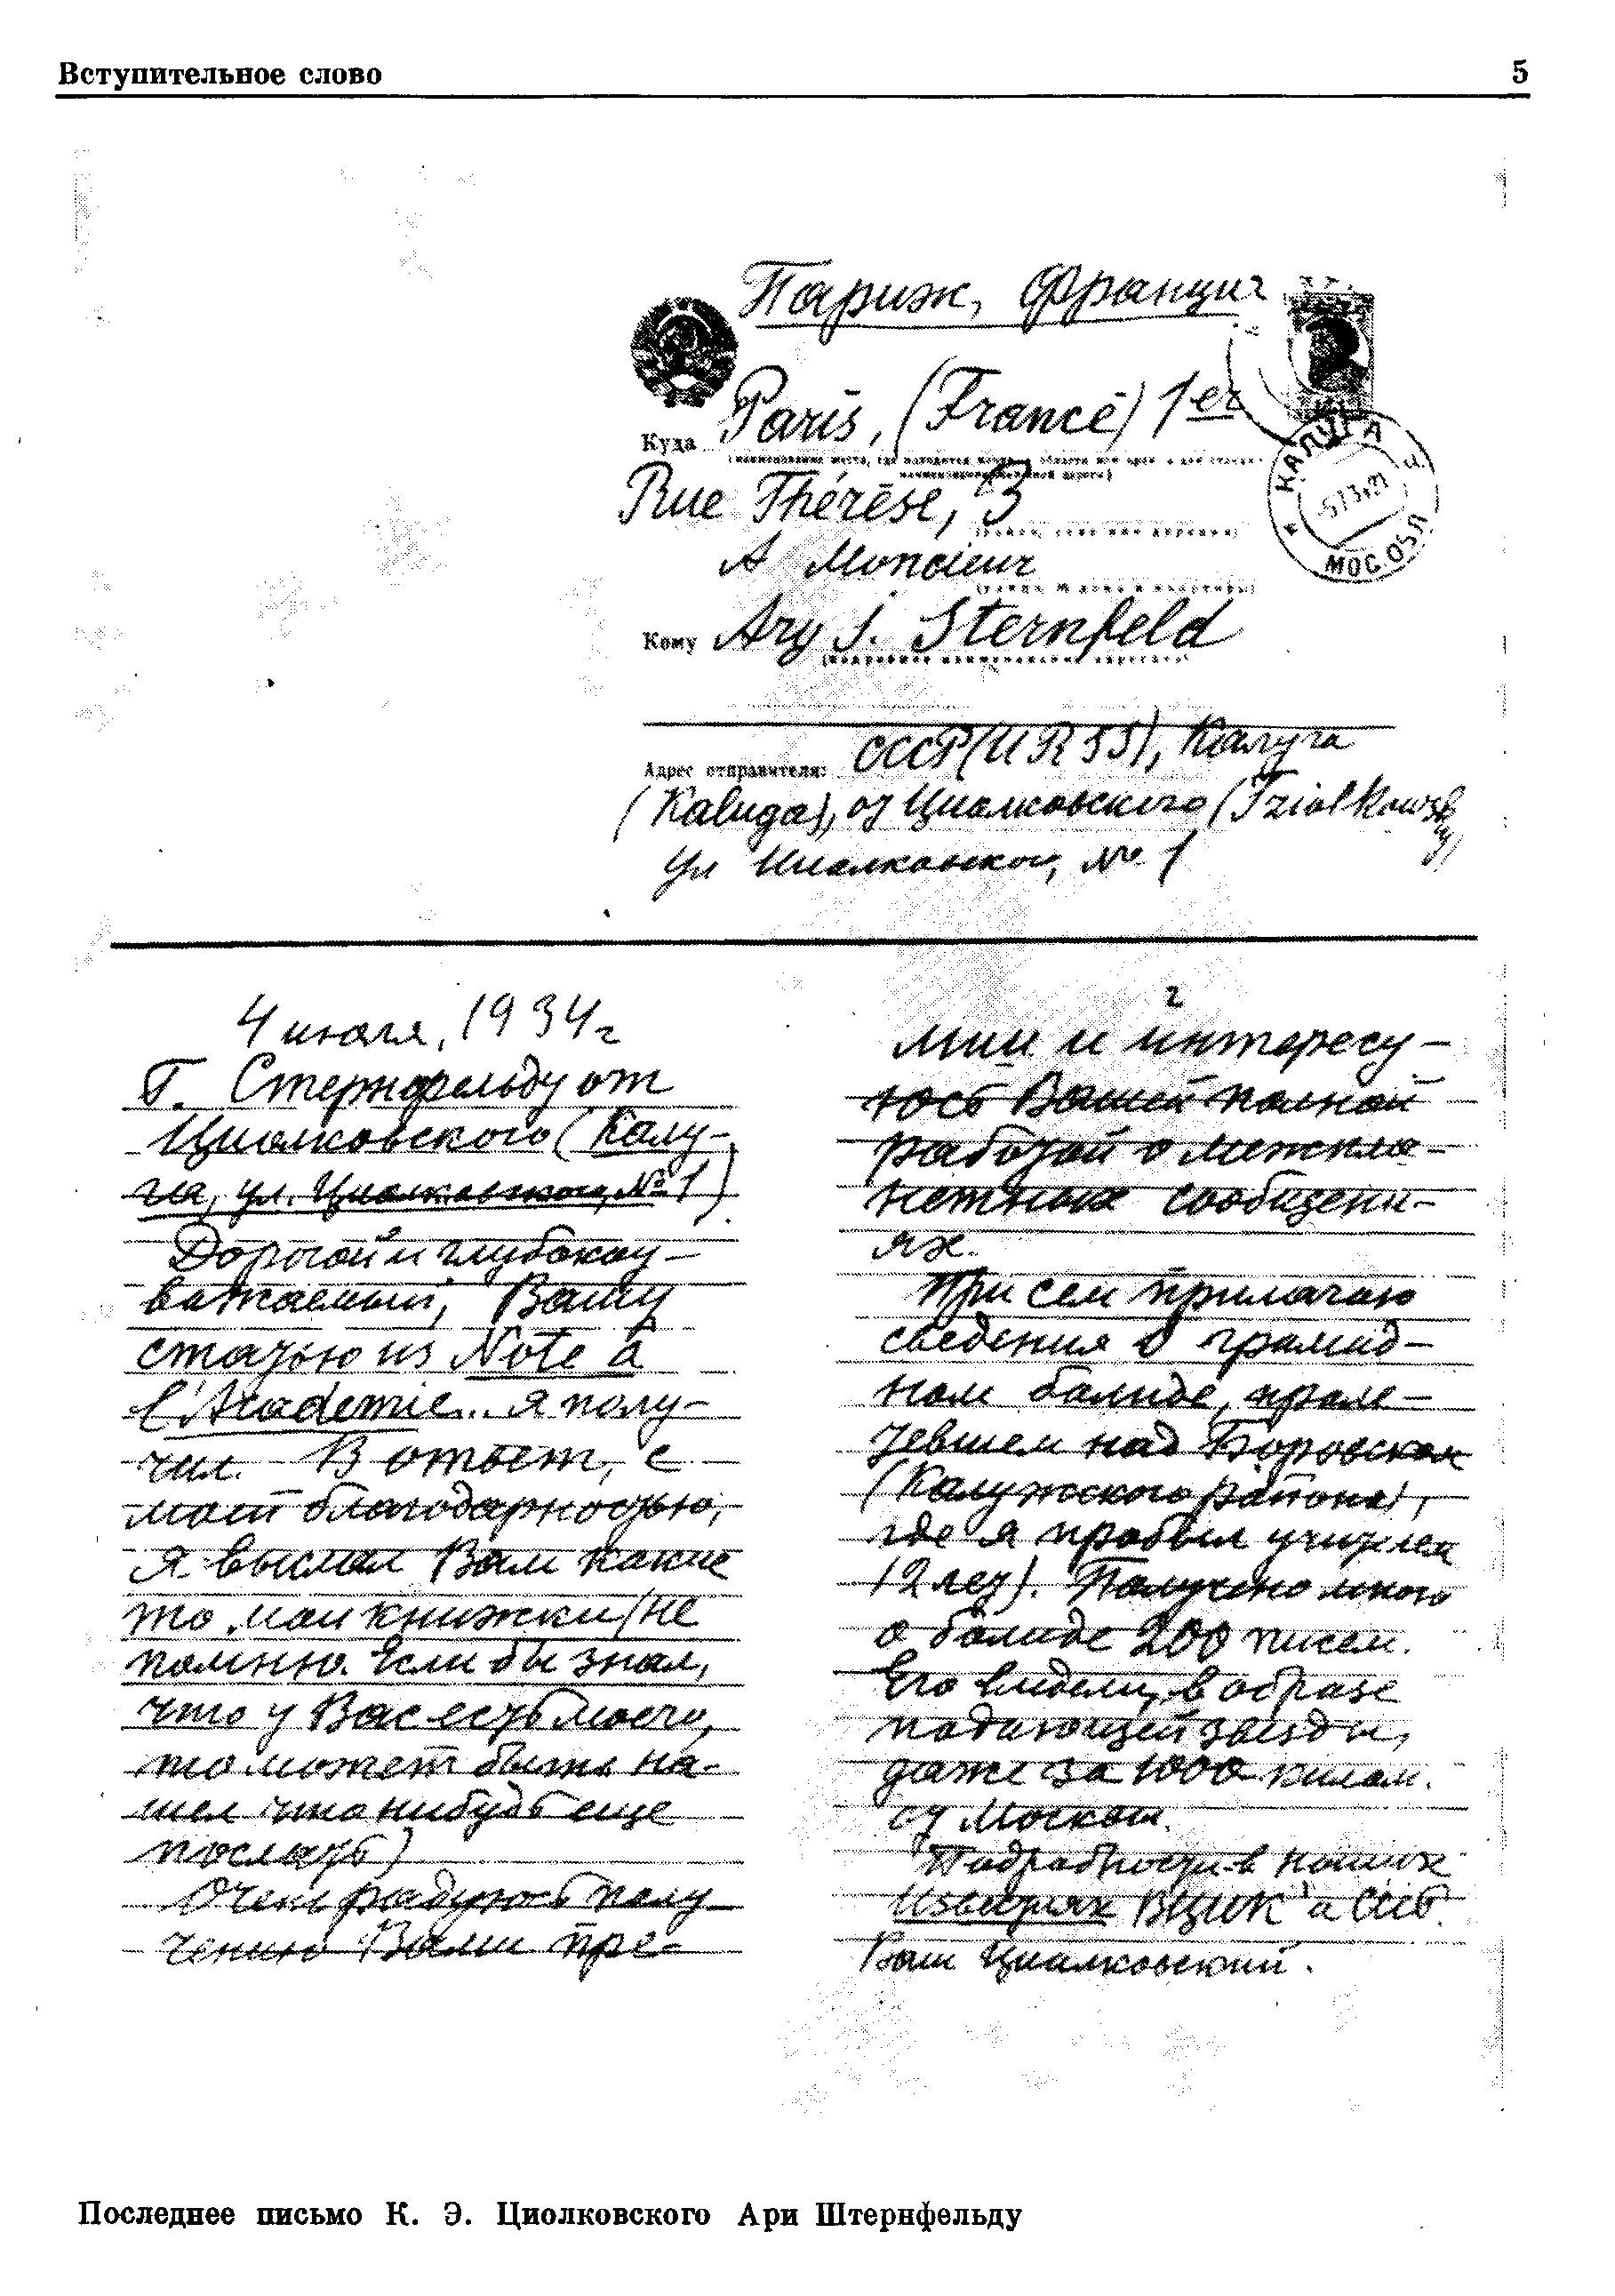 Вступительное слово 5
Париж, Франция
Куда Paris, (France) 1er
Rue Thérèse, 3
A Monsieur
Кому Ary J. Sternfeld
КАЛУГА
МОС. ОБЛ
Адрес отправителя: СССР (URSS), Калуга
(Kaluga), от Циолковского (Tziolkowsky)
ул Циолковского, № 1
4 июля, 1934 г
Г. Стернфельду от
Циолковского (Калу-
га, ул. Циолковского, № 1)
Дорогой и глубокоу-
важаемый, Вашу
статью из Note à
l'Academie.. я полу-
чил. В ответ, с
моей благодарностью,
я выслал Вам какие
то мои книжки (не
помню. Если бы знал,
что у Вас есть моего,
то может быть на-
шел что нибудь еще
послать)
Очень радуюсь полу-
чению Вами пре-
2
мии и интересу-
юсь Вашей полной
работой о межпла-
нетных сообщени-
ях.
При сем прилагаю
сведения о громад-
ном болиде, проле-
тевшем над Боровском
(Калужского района),
где я пробыл учителем
12 лет). Получено много
о болиде 200 писем.
Его видели, в образе
падающей звезды,
даже за 1000 килом.
от Москвы.
Подробности в наших
Известиях ВЦИК'а
Ваш Циолковский.
Последнее письмо К. Э. Циолковского Ари Штернфельду